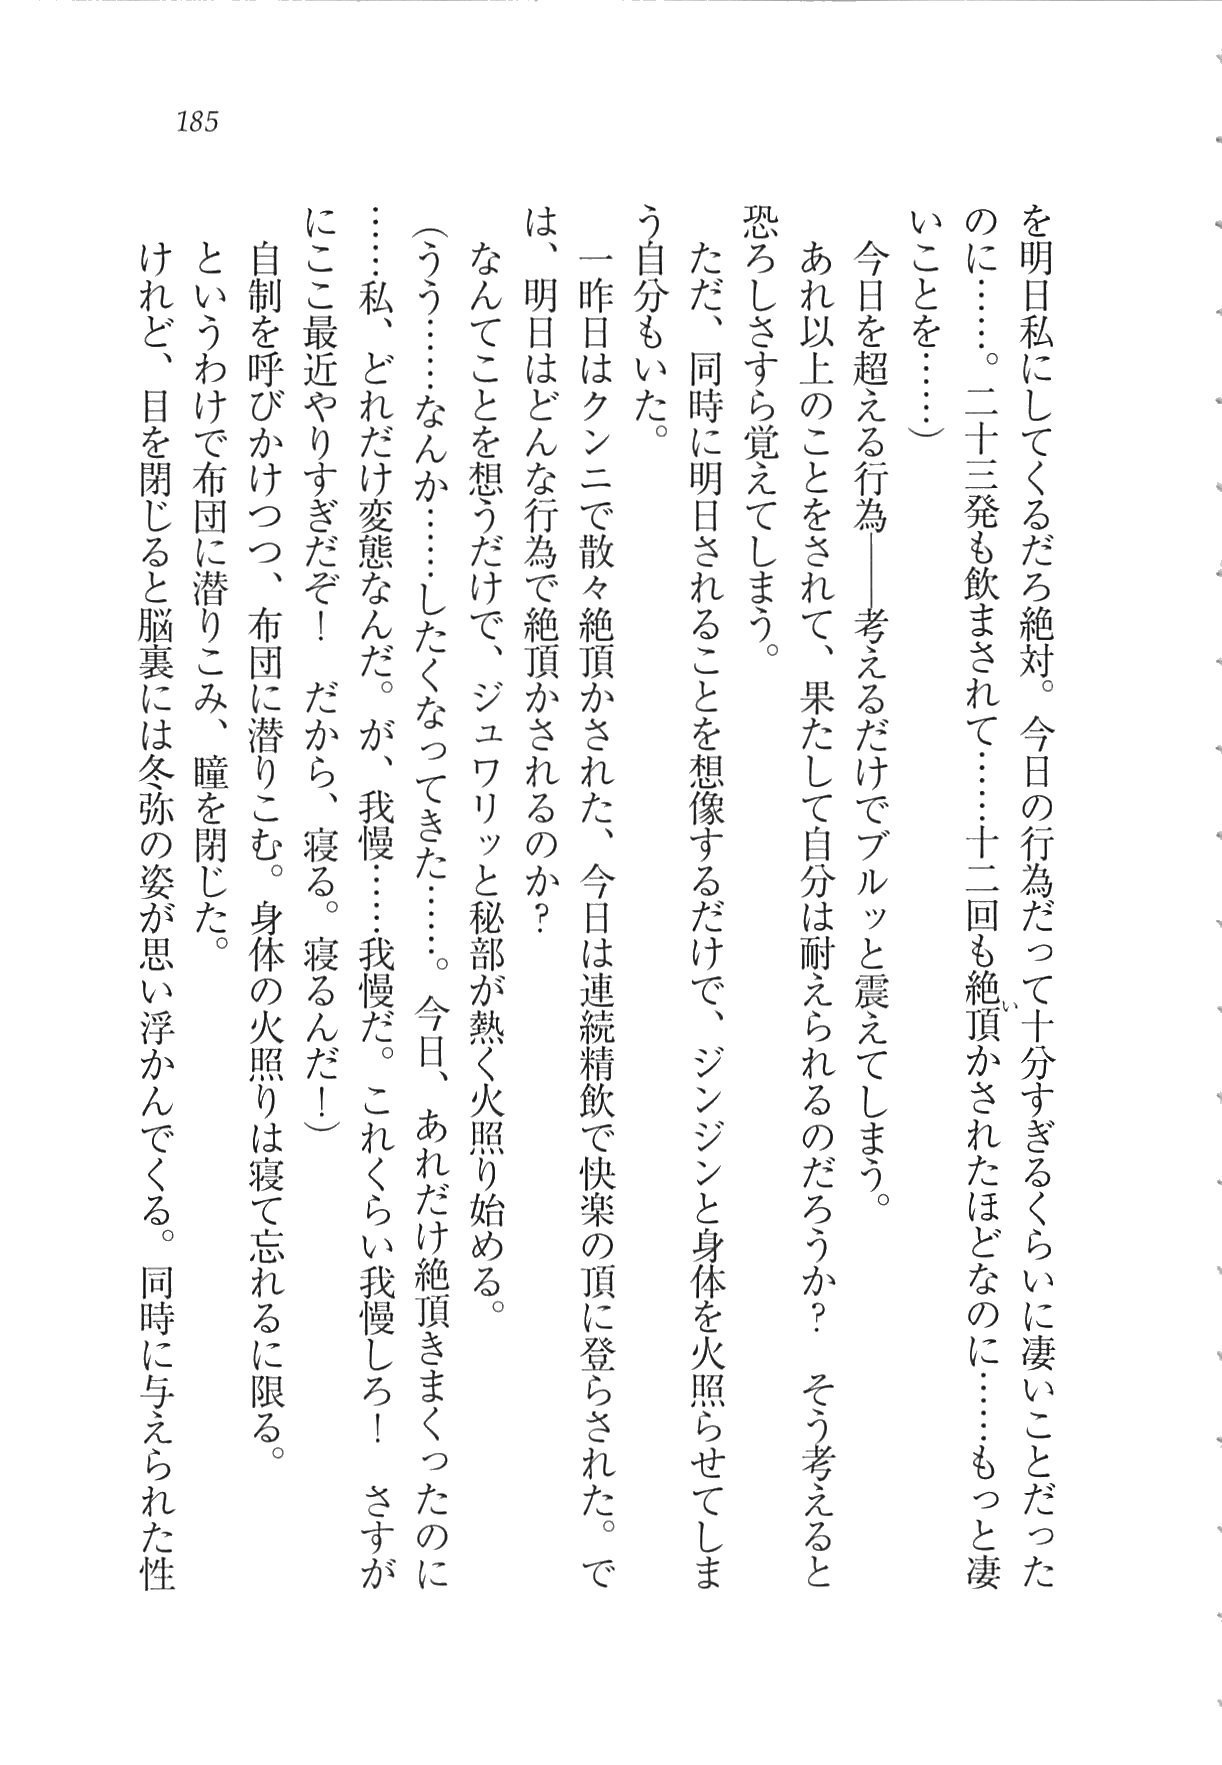 185
を明日私にしてくるだろ絶対。今日の行為だって十分すぎるくらいに凄いことだった
のに……。二十三発も飲まされて……十二回も絶頂かされたほどなのに……もっと凄
い
いことを……)
今日を超える行為――考えるだけでブルッと震えてしまう。
あれ以上のことをされて、果たして自分は耐えられるのだろうか？　そう考えると
恐ろしさすら覚えてしまう。
ただ、同時に明日されることを想像するだけで、ジンジンと身体を火照らせてしま
う自分もいた。
一昨日はクンニで散々絶頂かされた、今日は連続精飲で快楽の頂に登らされた。で
は、明日はどんな行為で絶頂かされるのか？
なんてことを想うだけで、ジュワリッと秘部が熱く火照り始める。
(うう……なんか……したくなってきた……。今日、あれだけ絶頂きまくったのに
……私、どれだけ変態なんだ。が、我慢……我慢だ。これくらい我慢しろ！　さすが
にここ最近やりすぎだぞ！　だから、寝る。寝るんだ！)
自制を呼びかけつつ、布団に潜りこむ。身体の火照りは寝て忘れるに限る。
というわけで布団に潜りこみ、瞳を閉じた。
けれど、目を閉じると脳裏には冬弥の姿が思い浮かんでくる。同時に与えられた性